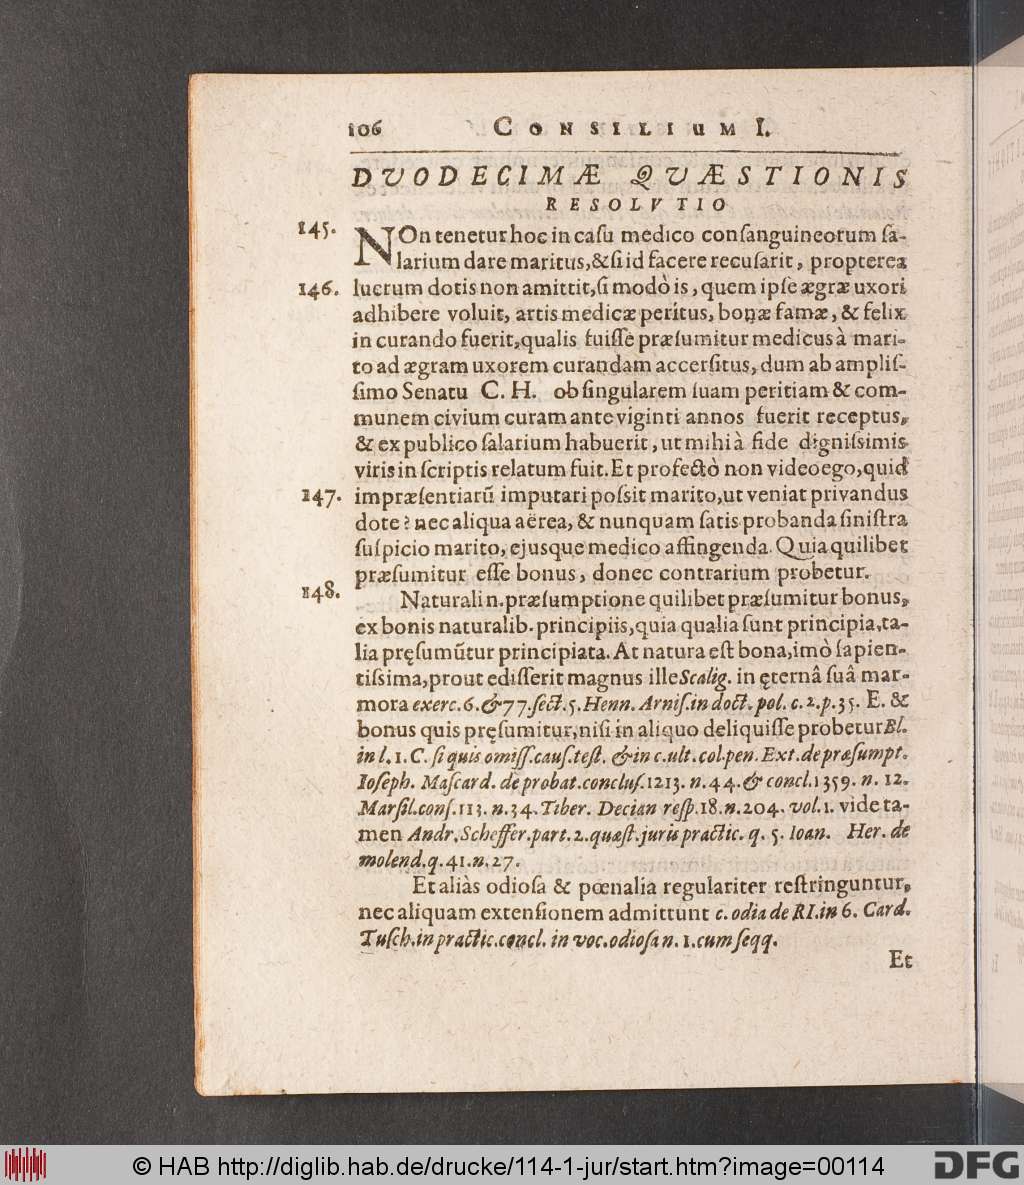 106 CONSILIUM I.
DVODECIMÆ QVÆSTIONIS
RESOLVTIO
145. NOn tenetur hoc in casu medico consanguineorum sa-
larium dare maritus, & si id facere recusarit, propterea
146. lucrum dotis non amittit, si modò is, quem ipse ægræ uxori
adhibere voluit, artis medicæ perítus, bonæ famæ, & felix
in curando fuerit, qualis fuisse præsumitur medicus à mari-
to ad ægram uxorem curandam accersitus, dum ab amplis-
simo Senatu C. H. ob singularem suam peritiam & com-
munem civium curam ante viginti annos fuerit receptus,
& ex publico salarium habuerit, ut mihi à fide dignissimis
viris in scriptis relatum fuit. Et profectò non video ego, quid
147. impræsentiarũ imputari possit marito, ut veniat privandus
dote? nec aliqua aërea, & nunquam satis probanda sinistra
suspicio marito, ejusque medico affingenda. Quia quilibet
præsumitur esse bonus, donec contrarium probetur.
148. Naturali n. præsumptione quilibet præsumitur bonus,
ex bonis naturalib. principiis, quia qualia sunt principia, ta-
lia pręsumũtur principiata. At natura est bona, imò sapien-
tissima, prout edisserit magnus ille Scalig. in ęternâ suâ mar-
mora exerc. 6. & 77. sect. 5. Henn. Arnis. in doct. pol. c. 2. p. 35. E. &
bonus quis pręsumitur, nisi in aliquo deliquisse probetur Bl.
in l. 1. C. si quis omiss. caus. test. & in c. ult. col. pen. Ext. de præsumpt.
Ioseph. Mascard. de probat. conclus. 1213. n. 44. & concl. 1359. n. 12.
Marsil. cons. 113. n. 34. Tiber. Decian resp. 18. n. 204. vol. 1. vide ta-
men Andr. Scheffer. part. 2. quæst. juris practic. q. 5. Ioan. Her. de
molend. q. 41. n. 27.
Et aliàs odiosa & pœnalia regulariter restringuntur,
nec aliquam extensionem admittunt c. odia de RI. in 6. Card.
Tusch. in practic. concl. in voc. odiosa n. 1. cum seqq.
Et
© HAB http://diglib.hab.de/drucke/114-1-jur/start.htm?image=00114
DFG